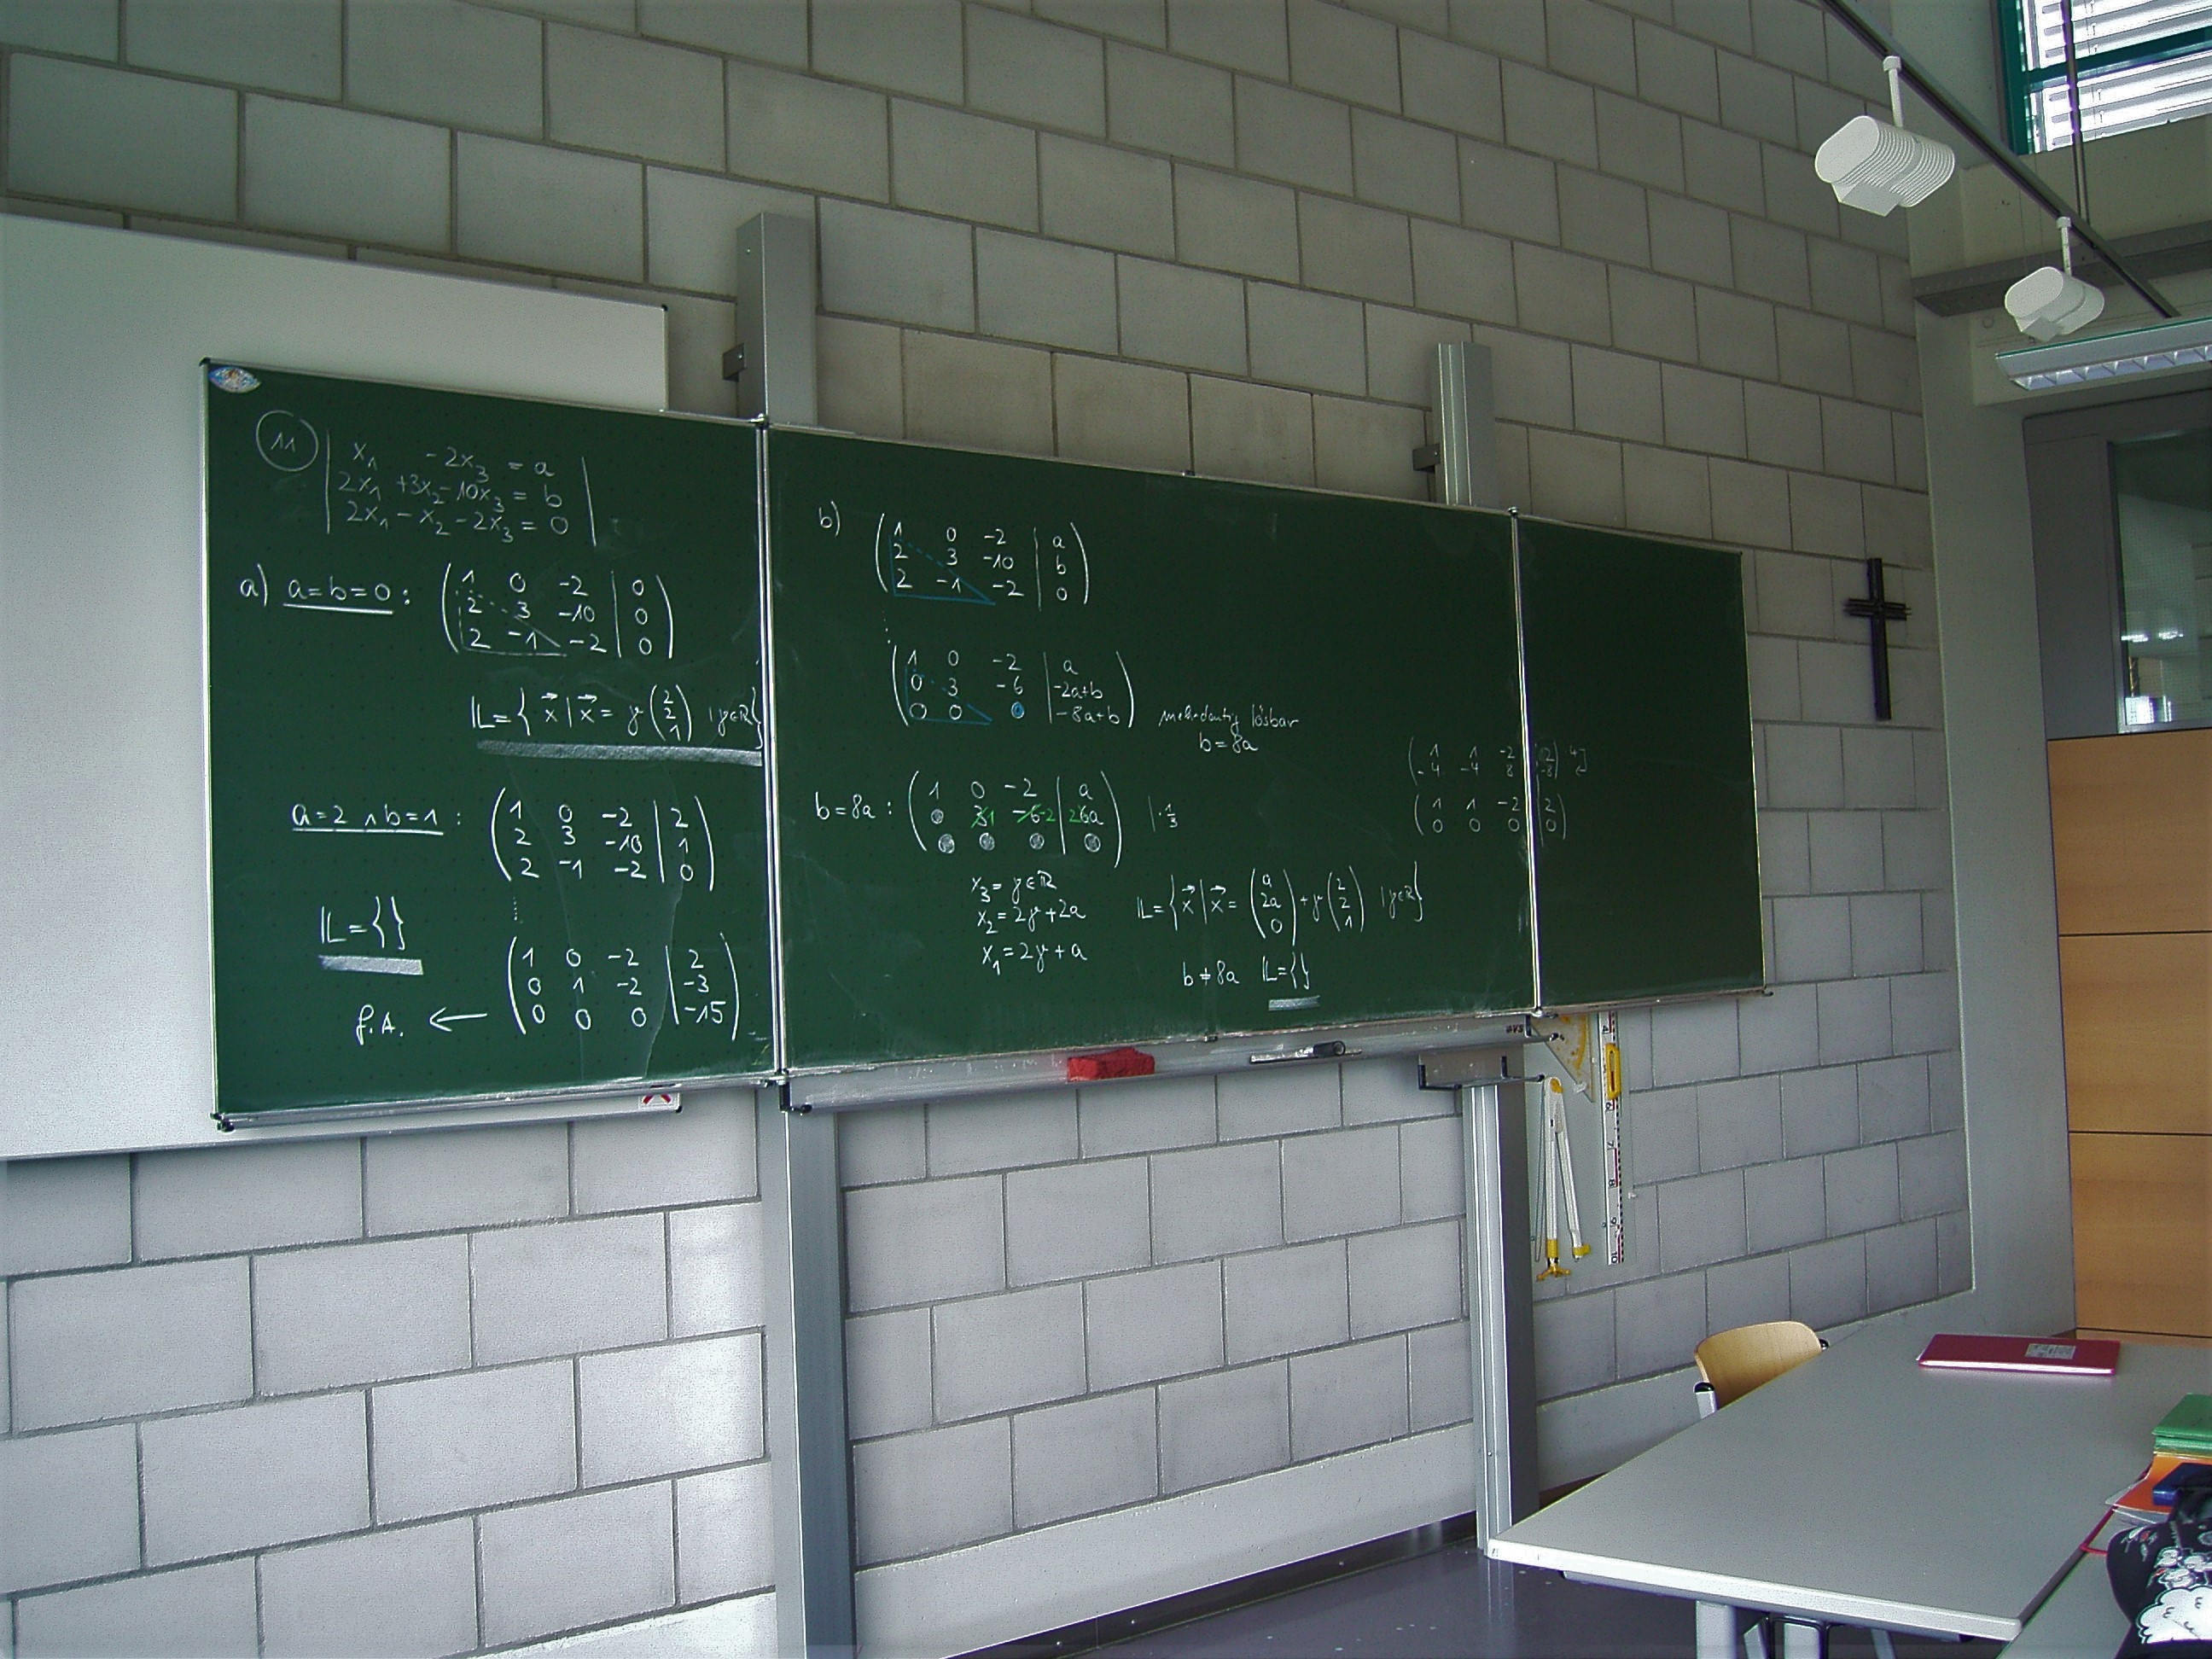 11
x₁ -2x₃ = a
2x₁ +3x₂-10x₃ = b
2x₁ - x₂ - 2x₃ = 0
a) a=b=0:
1 0 -2 | 0
2 3 -10 | 0
2 -1 -2 | 0
𝕃={ x⃗ | x⃗ = γ (2 2 1) | γ∈ℝ}
a=2 ∧ b=1 :
1 0 -2 | 2
2 3 -10 | 1
2 -1 -2 | 0
𝕃={}
1 0 -2 | 2
0 1 -2 | -3
0 0 0 | -15
f.A. ←
b)
1 0 -2 | a
2 3 -10 | b
2 -1 -2 | 0
1 0 -2 | a
0 3 -6 | -2a+b
0 0 0 | -8a+b
mehrdeutig lösbar
b=8a
b=8a :
1 0 -2 | a
0 3 1 -6 -2 | 2 6a | ·1/3
0 0 0 | 0
x₃= γ∈ℝ
x₂=2γ+2a
x₁=2γ+a
𝕃={ x⃗ | x⃗ = (a 2a 0) + γ (2 2 1) | γ∈ℝ}
b≠8a 𝕃={}
1 1 -2 | 2
-4 -4 8 | -8
1 1 -2 | 2
0 0 0 | 0